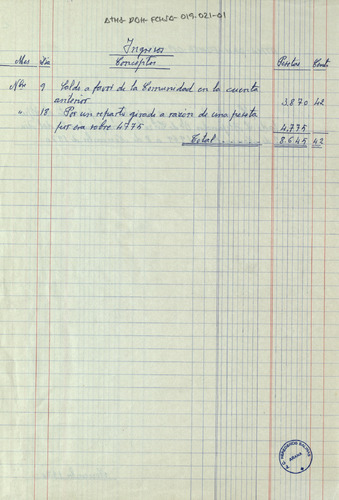 Ingresos
Mes Dia Conceptos Pesetas Cent
Nbre 9 Saldo a favor de la Comunidad en la cuenta
anterior 3.870 42
" 18 Por un reparto girado a razón de una peseta
por era sobre 4775 4.775
Total 8.645 42